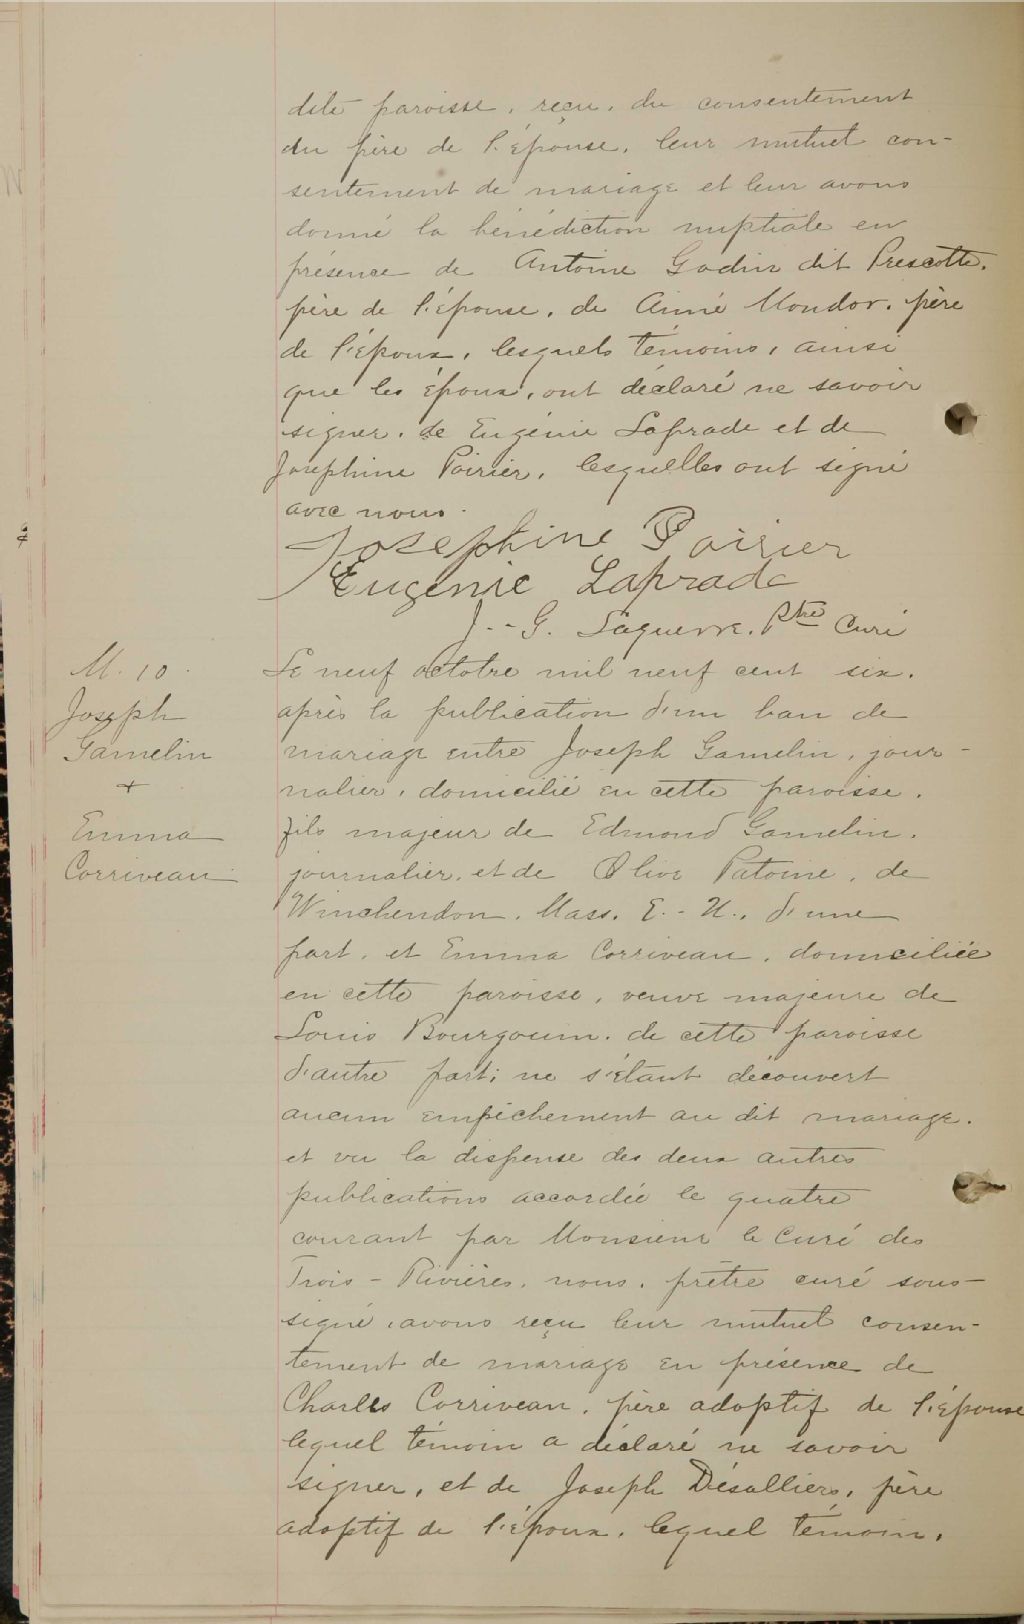 dite paroisse, reçu, du consentement
du père de l'épouse, leur mutuel con-
sentement de mariage et leur avons
donné la bénédiction nuptiale en
présence de Antoine Godin dit Prescotte,
père de l'épouse, de Aimé Mondor, père
de l'époux, lesquels témoins, ainsi
que les époux, ont déclaré ne savoir
signer, de Eugénie Laprade et de
Josephine Poirier, lesquelles ont signé
avec nous.
Josephine Poirier
Eugénie Laprade
J.-G. Laguerre, Ptre Curé
M. 10.
Joseph
Gamelin
+
Emma
Corriveau
Le neuf octobre mil neuf cent six,
après la publication d'un ban de
mariage entre Joseph Gamelin, jour-
nalier, domicilié en cette paroisse,
fils majeur de Edmond Gamelin,
journalier, et de Olive Patoine, de
Winchendon, Mass. E.-U., d'une
part, et Emma Corriveau, domiciliée
en cette paroisse, veuve majeure de
Louis Bourgouin, de cette paroisse
d'autre part; ne s'étant découvert
aucun empêchement au dit mariage,
et vu la dispense des deux autres
publications accordée le quatre
courant par Monsieur le Curé des
Trois-Rivières, nous, prêtre curé sous-
signé, avons reçu leur mutuel consen-
tement de mariage en présence de
Charles Corriveau, père adoptif de l'épouse
lequel témoin a déclaré ne savoir
signer, et de Joseph Désalliers, père
adoptif de l'époux, lequel témoin,